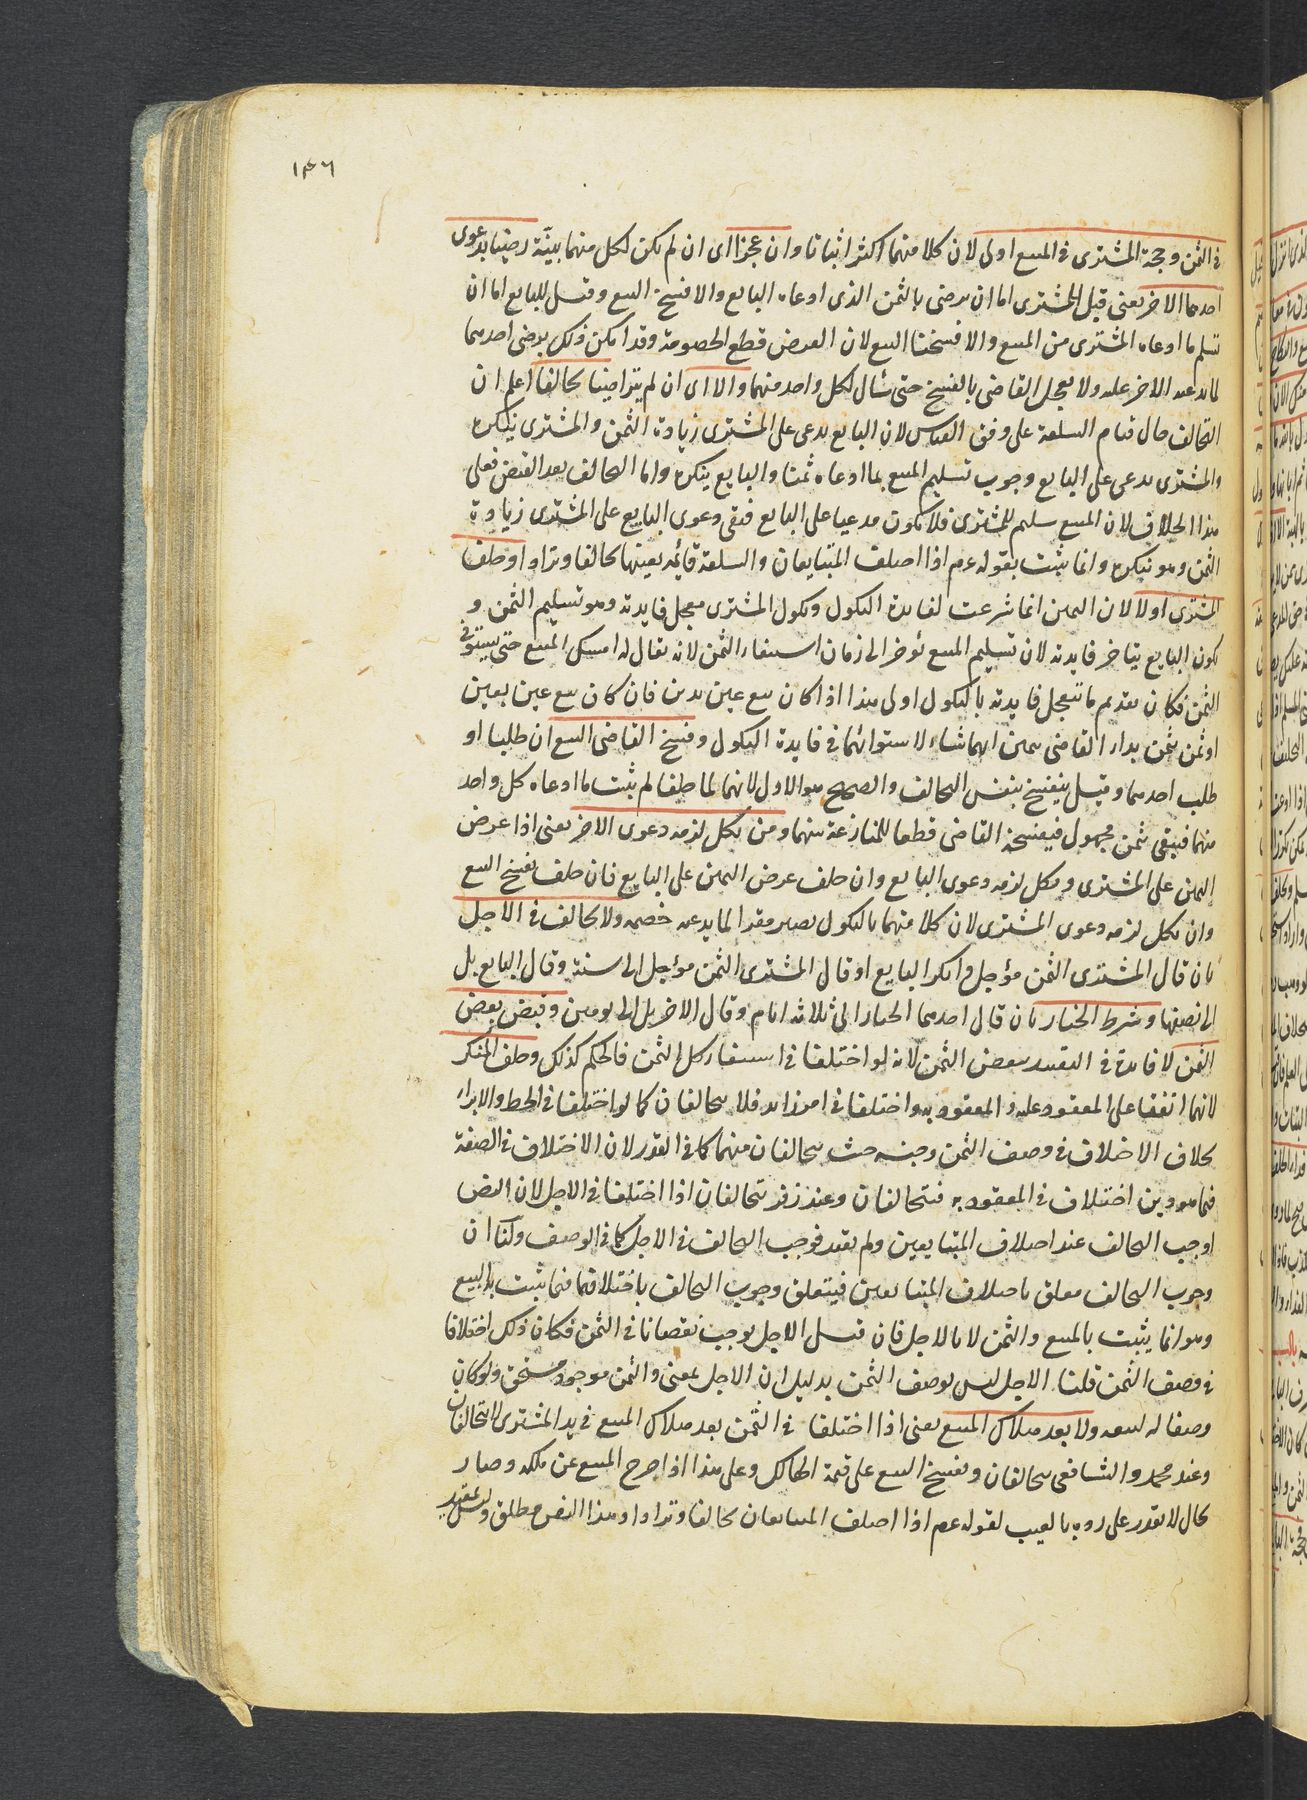 ١٣٦
فى الثمن وحجة المشترى فى المبيع اولى لان كلا منهما اكثر اثباتا وان عجزا اى ان لم يكن لكل منهما بينة رضيا بدعوى
احدهما الاخر يعنى قيل للمشترى اما ان ترضى بالثمن الذى ادعاه البايع والا فسخنا البيع وقيل للبايع اما ان
تسلم ما ادعاه المشترى من المبيع والا فسخنا البيع لان الغرض قطع الخصومة وقد امكن ذلك برضى احدهما
لما يدعيه الاخر عليه ولا يعجل القاضى بالفسخ حتى يسأل لكل واحد منهما والا اى ان لم يتراضيا تحالفا اعلم ان
التحالف حال قيام السلعة على وفق القياس لان البايع يدعى على المشترى زيادة الثمن والمشترى ينكره
والمشترى يدعى على البايع وجوب تسليم المبيع بما ادعاه ثمنا والبايع ينكره واما التحالف بعد القبض فعلى
هذا الخلاف لان المبيع سليم للمشترى فلا يكون مدعيا على البايع فبقى دعوى البايع على المشترى زيادة
الثمن وهو ينكره وانما يثبت بقوله عم اذا اختلف المتبايعان والسلعة قائمة بعينها تحالفا وترادا وحلف
المشترى اولا لان اليمين انما شرعت لفايدة النكول ونكول المشترى معجل فايدته وهو تسليم الثمن و
نكول البايع يتاخر فايدته لان تسليم المبيع يؤخر الى زمان استيفاء الثمن لانه يقال له امسك المبيع حتى يستوفى
الثمن فكان تقديم ما تتعجل فايدته بالنكول اولى هذا اذا كان بيع عين بدين فان كان بيع عين بعين
او ثمن بثمن بداء القاضى بيمين ايهما شاء لاستوائهما فى فايدة النكول وفسخ القاضى البيع ان طلبا او
طلب احدهما وقيل ينفسخ بنفس التحالف والصحيح هو الاول لانهما لما حلفا لم يثبت ما ادعاه كل واحد
منهما فيبقى بثمن مجهول فيفسخه القاضى قطعا للمنازعة بينهما ومن نكل لزمه دعوى الاخر يعنى اذا عرض
اليمين على المشترى ونكل لزمه دعوى البايع وان حلف عرض اليمين على البايع فان حلف يفسخ البيع
وان نكل لزمه دعوى المشترى لان كلا منهما بالنكول يصير مقرا لما يدعيه خصمه ولا تحالف فى الاجل
بان قال المشترى الثمن مؤجل وانكر البايع او قال المشترى الثمن مؤجل الى سنة وقال البايع بل
الى نصفها وشرط الخيار بان قال احدهما الخيار الى ثلاثة ايام وقال الاخر بل الى يومين وقبض بعض
الثمن لا فايدة فى التقييد ببعض الثمن لانه لو اختلفا فى استيفاء كل الثمن فالحكم كذلك وحلف المنكر
لانهما اتفقا على المعقود عليه والمعقود به واختلفا فى امر زايد فلا يتحالفان كما لو اختلفا فى الحط والابراء
بخلاف الاختلاف فى وصف الثمن وجنسه حيث يتحالفان منهما كما فى القدر لان الاختلاف فى الصفة
فيما هو دين اختلاف فى المعقود به فيتحالفان وعند زفر يتحالفان اذا اختلفا فى الاجل لان النص
اوجب التحالف عند اختلاف المتبايعين ولم يقيد فوجب التحالف فى الاجل كما فى الوصف ولنا ان
وجوب التحالف معلق باختلاف المتبايعين فيتعلق وجوب التحالف باختلافهما فيما يثبت به البيع
وهو انما يثبت بالمبيع والثمن لا بالاجل فان قيل الاجل يوجب نقصانا فى الثمن فكان ذلك اختلافا
فى وصف الثمن قلنا الاجل ليس بوصف الثمن بدليل ان الاجل بمعنى والثمن موجود مستحق ولو كان
وصفا له لتبعه ولا بعد هلاك المبيع يعنى اذا اختلفا فى الثمن بعد هلاك المبيع فى يد المشترى لا يتحالفان
وعند محمد والشافعى يتحالفان ويفسخ البيع على قيمة الهالك وعلى هذا اذا خرج المبيع عن ملكه وصار
بحال لا يقدر على رده بالعيب لقوله عم اذا اختلف المتبايعان تحالفا وترادا وهذا النص مطلق وليس بمقيد